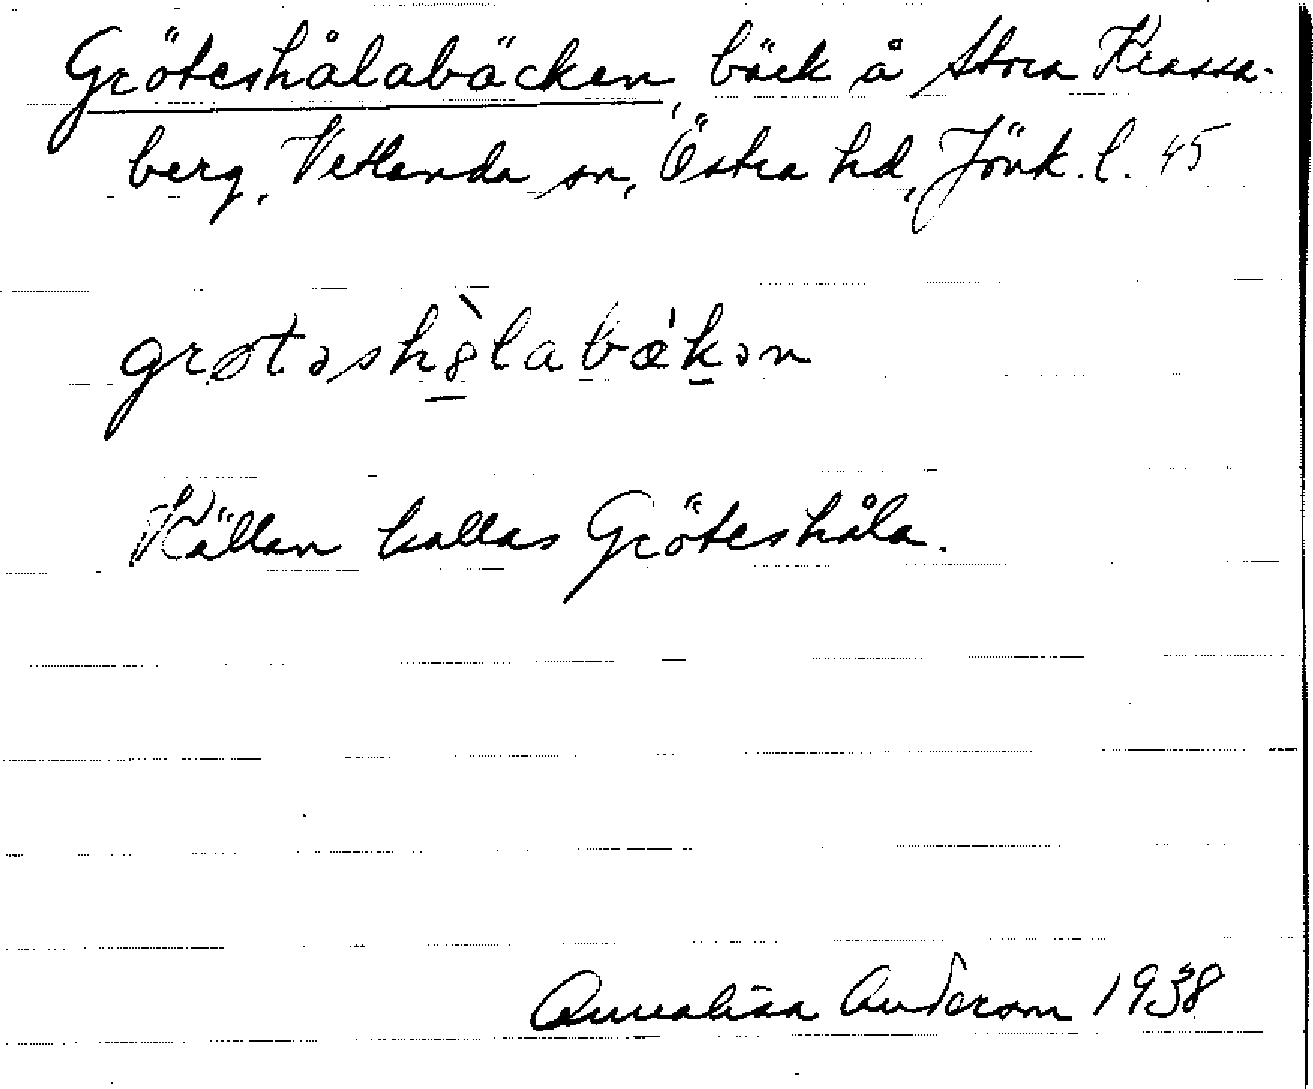 Gröteshålabäcken, bäck å Stora Krassa-
berg, Vetlanda sn, Östra hd, Jönk. l. 45
grøtəshòlabækən
Källan kallas Gröteshåla.
Annalisa Anderson 1938